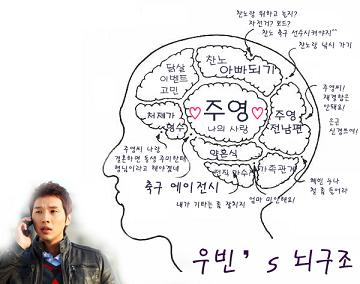 찬노랑 뭐하고 놀지?
자전거? 보드?
찬노 축구 선수시켜야지^^
찬노랑 낚시 가기
찬노
아빠되기
닭살
이벤트
고민
주영씨!
재결합은
안돼요!
은근
신경쓰여!
♡주영♡
나의 사랑
주영
전남편
처제가
형수
주영씨 나랑
결혼하면 동생 주미한테
형님이라고 해야겠네
약혼식
가족관계
혜인 누나
철 좀 들어라
축구 에이전시
내가 기타는 좀 잘치지
엄마 미안해요!
우빈's 뇌구조